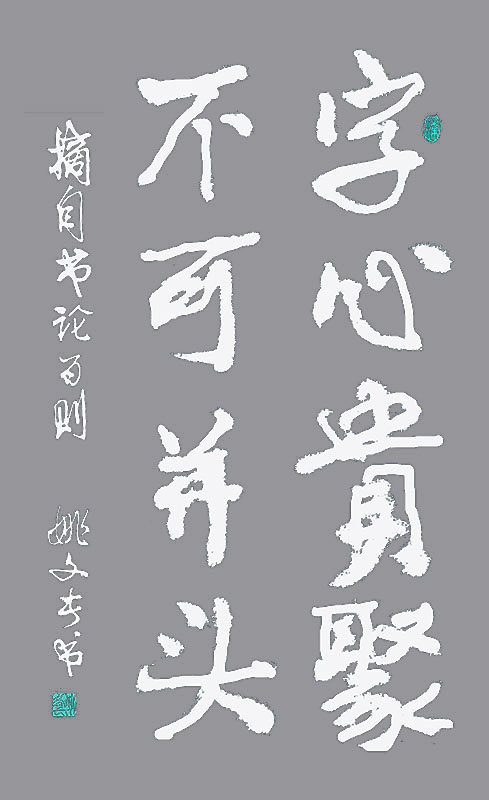 字心贵聚
不可并头
摘自书论百则
姚文春书